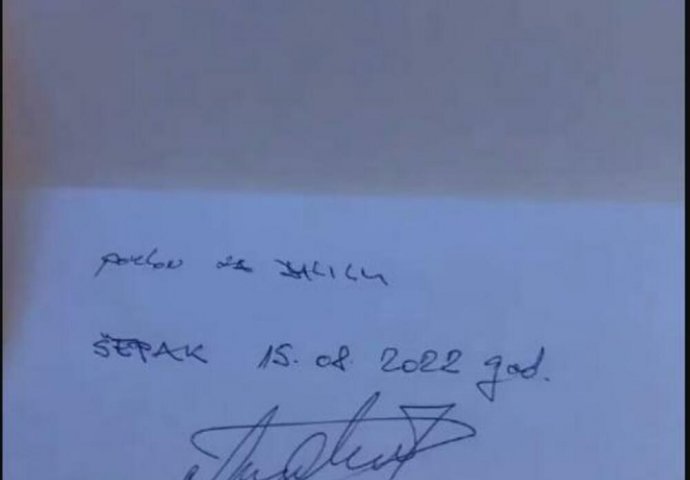 poklon za
ŠEPAK 15. 08. 2022 god.